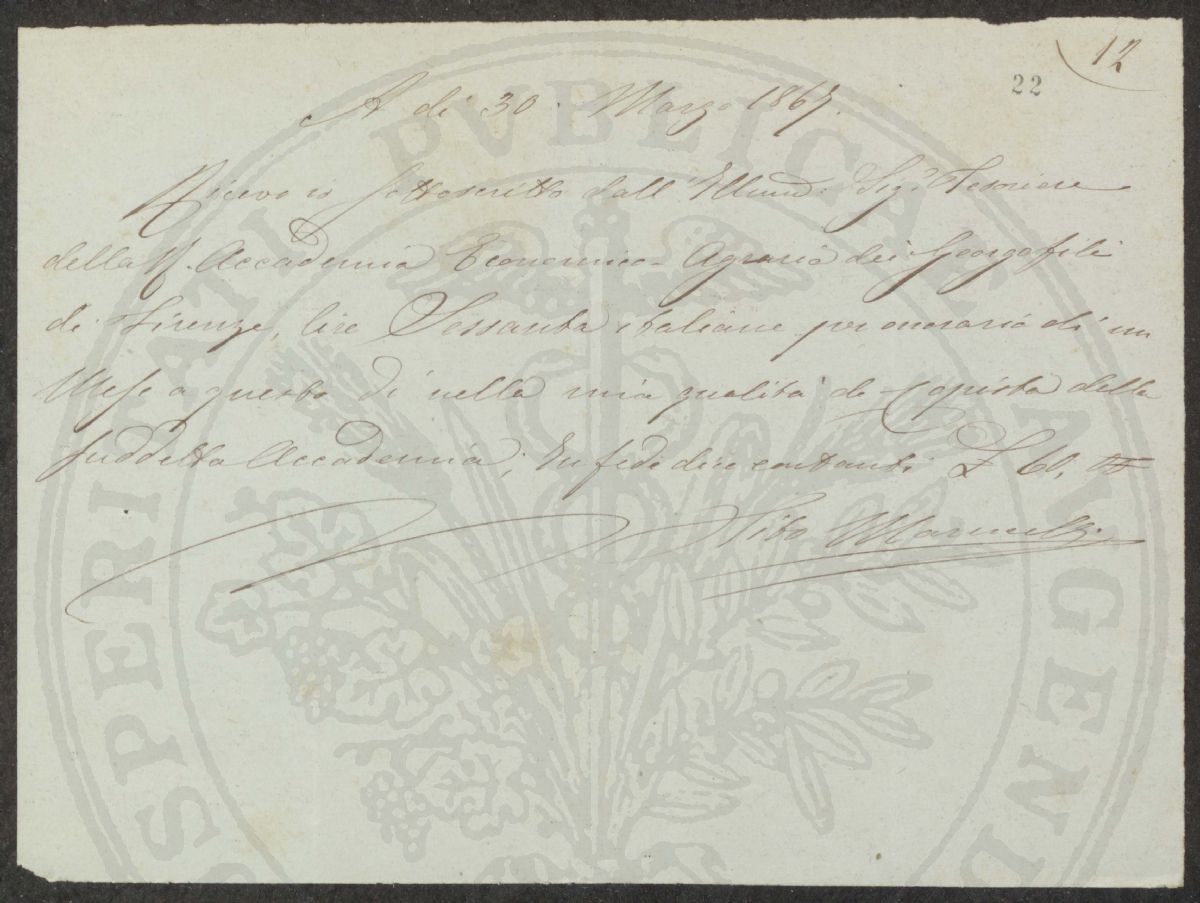 12
22
A dì 30. Marzo 1867.
Ricevo io sottoscritto dall' Sigr Tesoriere
della R. Accademia Economico-Agraria dei Georgofili
di Firenze, lire Sessanta italiane per onorario di un
Mese a questo dì nella mia qualità di Copista della
suddetta Accademia; In fede dico contanti £ 60,
Vito
PROSPERITATI PVBLICAE AVGENDAE